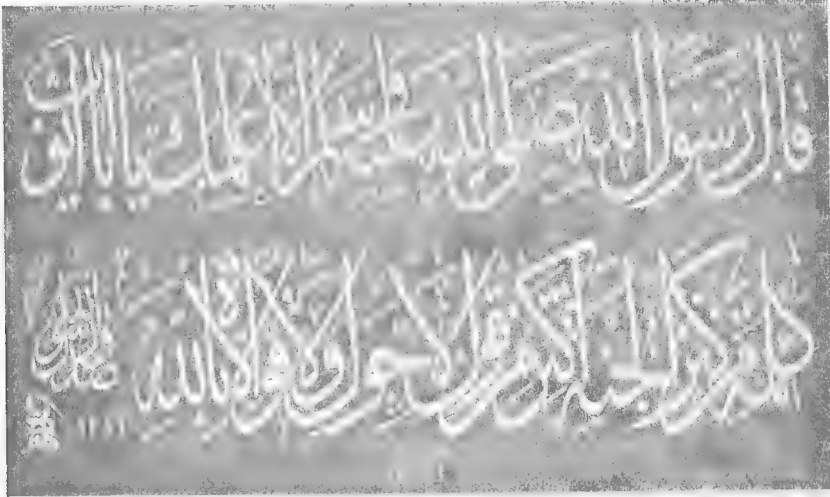 قال رسول الله صلى الله عليه وسلم الا اعلمك يا ابا ايوب
كلمة من كنز الجنة اكثر من قول لا حول ولا قوة الا بالله